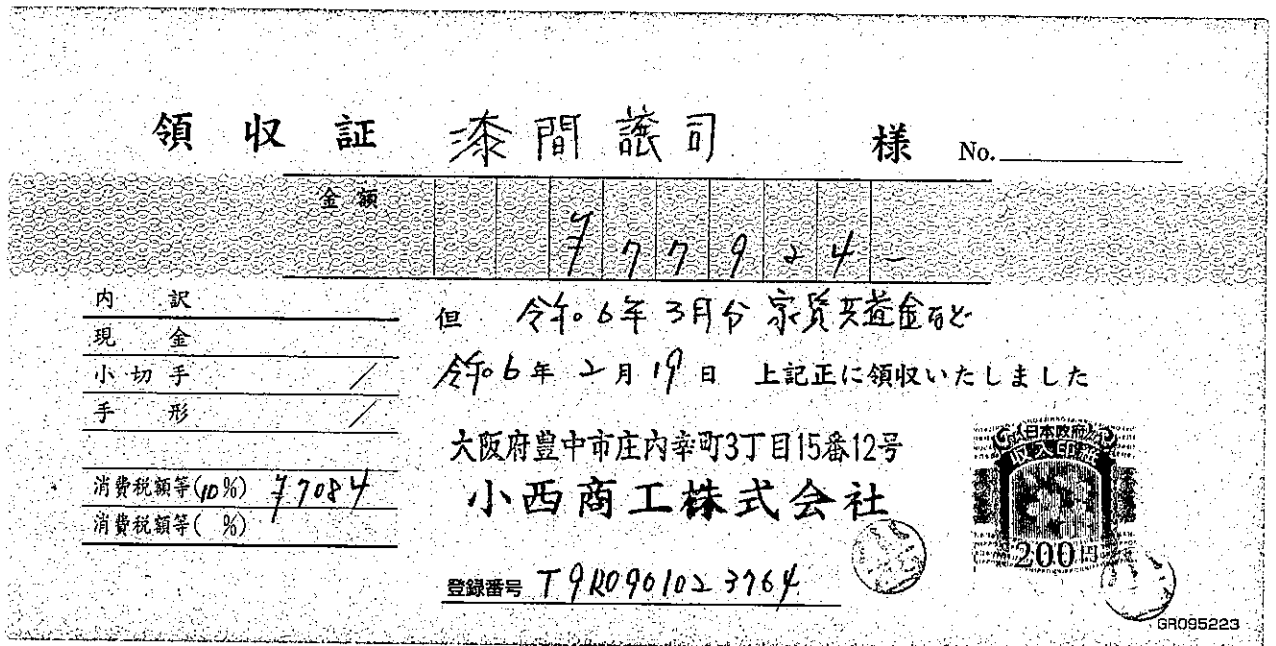 領収証 漆間譲司 様 No.
金額 ¥77924-
内訳
現金
小切手 /
手形 /
消費税額等(10%) ¥7084
消費税額等( %)
但 令和6年3月分 家賃共益金など
令和6年2月19日 上記正に領収いたしました
大阪府豊中市庄内幸町3丁目15番12号
小西商工株式会社
登録番号 T9
日本政府
収入印紙
200円
GR095223